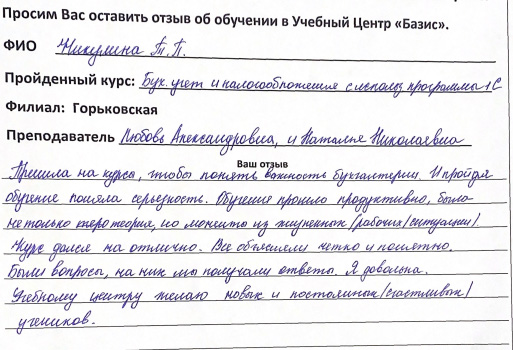 Просим Вас оставить отзыв об обучении в Учебный Центр «Базис».
ФИО Никулина Т.П.
Пройденный курс: Бух. учет и налогообложение с использ программы 1С
Филиал: Горьковская
Преподаватель Любовь Александровна, и Наталья Николаевна
Ваш отзыв
Пришла на курсы, чтобы понять важность бухгалтерии. И пройдя
обучение поняла серьезность. Обучение прошло продуктивно, было
не только теория, но моменты из жизненных /рабочих/ ситуации/.
Курс дался на отлично. Все объясняли четко и понятно.
Были вопросы, на них мы получали ответы. Я довольна.
Учебному центру желаю новых и постоянных /счастливых/
учеников.